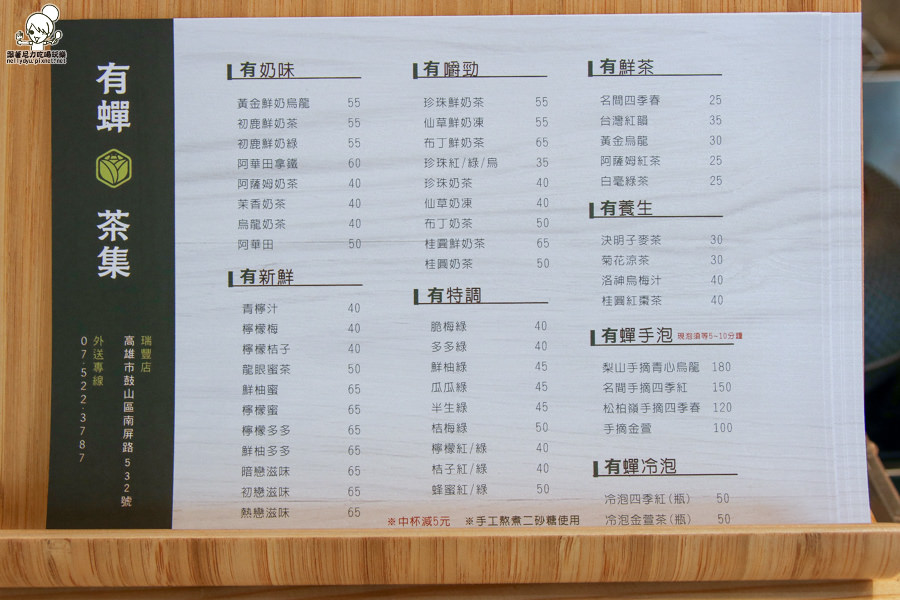 跟著尼力吃喝玩樂
nellydyu.pixnet.net
有蟬
茶集
瑞豐店
高雄市鼓山區南屏路532號
外送專線
07-522-3787
有奶味
黃金鮮奶烏龍 55
初鹿鮮奶茶 55
初鹿鮮奶綠 55
阿華田拿鐵 60
阿薩姆奶茶 40
茉香奶茶 40
烏龍奶茶 40
阿華田 50
有新鮮
青檸汁 40
檸檬梅 40
檸檬桔子 40
龍眼蜜茶 50
鮮柚蜜 65
檸檬蜜 65
檸檬多多 65
鮮柚多多 65
暗戀滋味 65
初戀滋味 65
熱戀滋味 65
有嚼勁
珍珠鮮奶茶 55
仙草鮮奶凍 55
布丁鮮奶茶 65
珍珠紅/綠/烏 35
珍珠奶茶 40
仙草奶凍 40
布丁奶茶 50
桂圓鮮奶茶 65
桂圓奶茶 50
有特調
脆梅綠 40
多多綠 40
鮮柚綠 45
瓜瓜綠 45
半生綠 45
桔梅綠 50
檸檬紅/綠 40
桔子紅/綠 40
蜂蜜紅/綠 50
有鮮茶
名間四季春 25
台灣紅韻 35
黃金烏龍 30
阿薩姆紅茶 25
白毫綠茶 25
有養生
決明子麥茶 30
菊花涼茶 30
洛神烏梅汁 40
桂圓紅棗茶 40
有蟬手泡 現泡須等5~10分鐘
梨山手摘青心烏龍 180
名間手摘四季紅 150
松柏嶺手摘四季春 120
手摘金萱 100
有蟬冷泡
冷泡四季紅(瓶) 50
冷泡金萱茶(瓶) 50
※中杯減5元 ※手工熬煮二砂糖使用